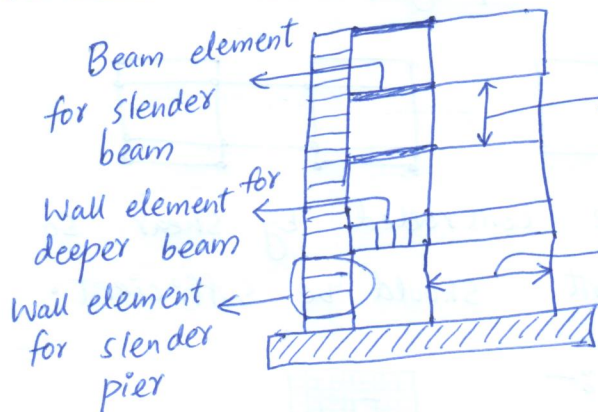 Beam element
for slender
beam
Wall element for
deeper beam
Wall element
for slender
pier